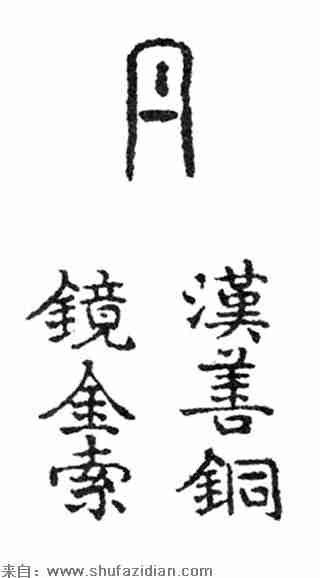 丹
漢善銅
鏡金索
来自：www.shufazidian.com